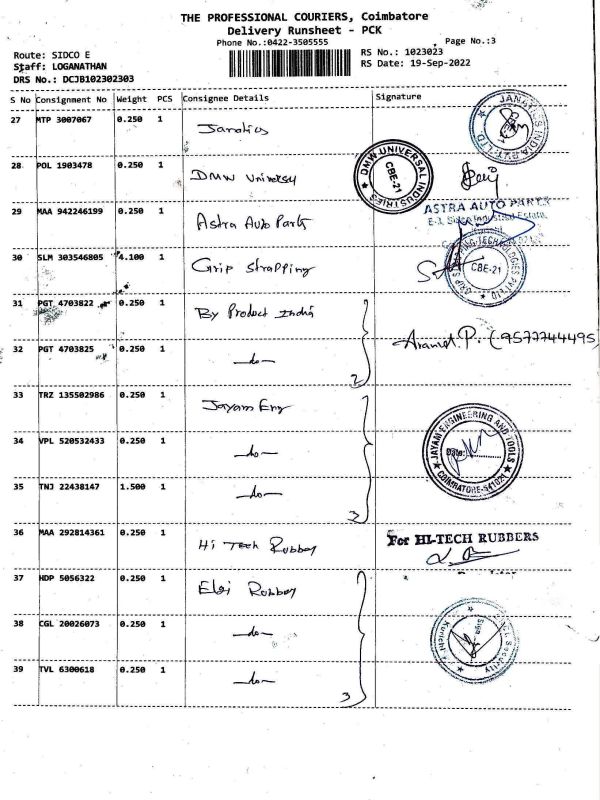 THE PROFESSIONAL COURIERS, Coimbatore
Delivery Runsheet - PCK
Phone No.:0422-3505555
Page No.:3
Route: SIDCO E
RS No.: 1023023
Staff: LOGANATHAN
RS Date: 19-Sep-2022
DRS No.: DCJB102302303
S No Consignment No Weight PCS Consignee Details Signature
27 MTP 3007067 0.250 1 Janatics
JANATICS INDIA PVT LTD
28 POL 1903478 0.250 1 DMW Universy
DMW UNIVERSAL INDUSTRIES CBE-21
29 MAA 942246199 0.250 1 Astra Auto Parts
ASTRA AUTO PARTS
30 SLM 303546805 4.100 1 Grip Strapping
GRIP STRAPPING TECHNOLOGIES PVT LTD CBE-21
31 PGT 4703822 0.250 1 By Product India
32 PGT 4703825 0.250 1 -do-
2
P. (9577744495)
33 TRZ 135502986 0.250 1 Jayam Eng
34 VPL 520532433 0.250 1 -do-
JAYAM ENGINEERING AND TOOLS
Date:
COIMBATORE-641021
35 TNJ 22438147 1.500 1 -do-
3
36 MAA 292814361 0.250 1 Hi Tech Rubber
For HI-TECH RUBBERS
37 HDP 5056322 0.250 1 Elgi Rubber
38 CGL 20026073 0.250 1 -do-
Security
39 TVL 6300618 0.250 1 -do-
3